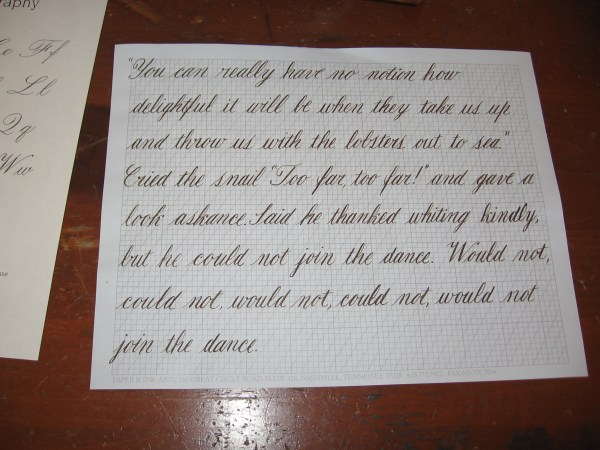 raphy
Ff
Ll
Qq
Ww
"You can really have no notion how
delightful it will be when they take us up
and throw us with the lobsters out to sea."
Cried the snail "Too far, too far!" and gave a
look askance. Said he thanked whiting kindly,
but he could not join the dance. Would not,
could not, would not, could not, would not
join the dance.